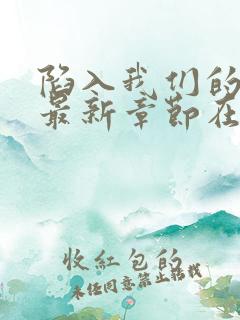 陷入我们的
最新章节在
收红包的
未经同意禁止转载